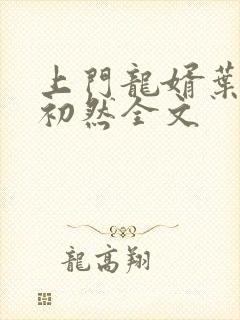 上門龍婿葉
初然全文
龍高翔